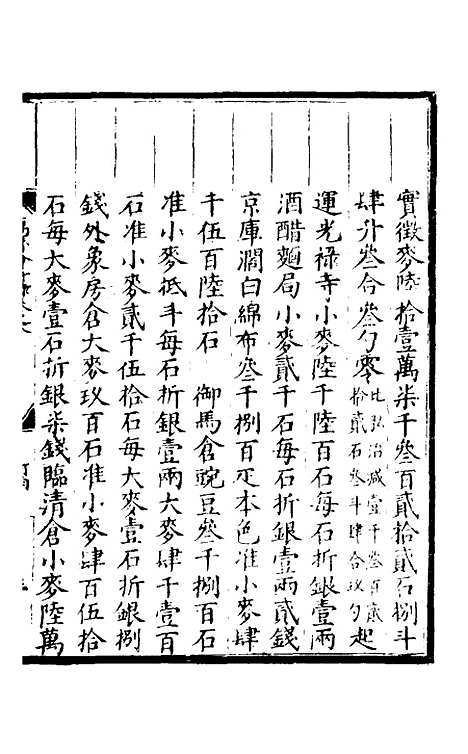 實徵麥陸拾壹萬柒千叁百貳拾貳石捌斗
肆升叁合叁勺零比弘治減壹千叁百
拾貳石叁斗肆合玖勺起
運光祿寺小麥陸千陸百石每石折銀壹兩
酒醋麵局小麥貳千石每石折銀壹兩貳錢
京庫濶白綿布叁千捌百疋本色准小麥肆
千伍百陸拾石 御馬倉豌豆叁千捌百石
准小麥抵斗每石折銀壹兩大麥肆千壹百
石准小麥貳千伍拾石每大麥壹石折銀捌
錢外象房倉大麥玖百石准小麥肆百伍拾
石每大麥壹石折銀柒錢臨清倉小麥陸萬